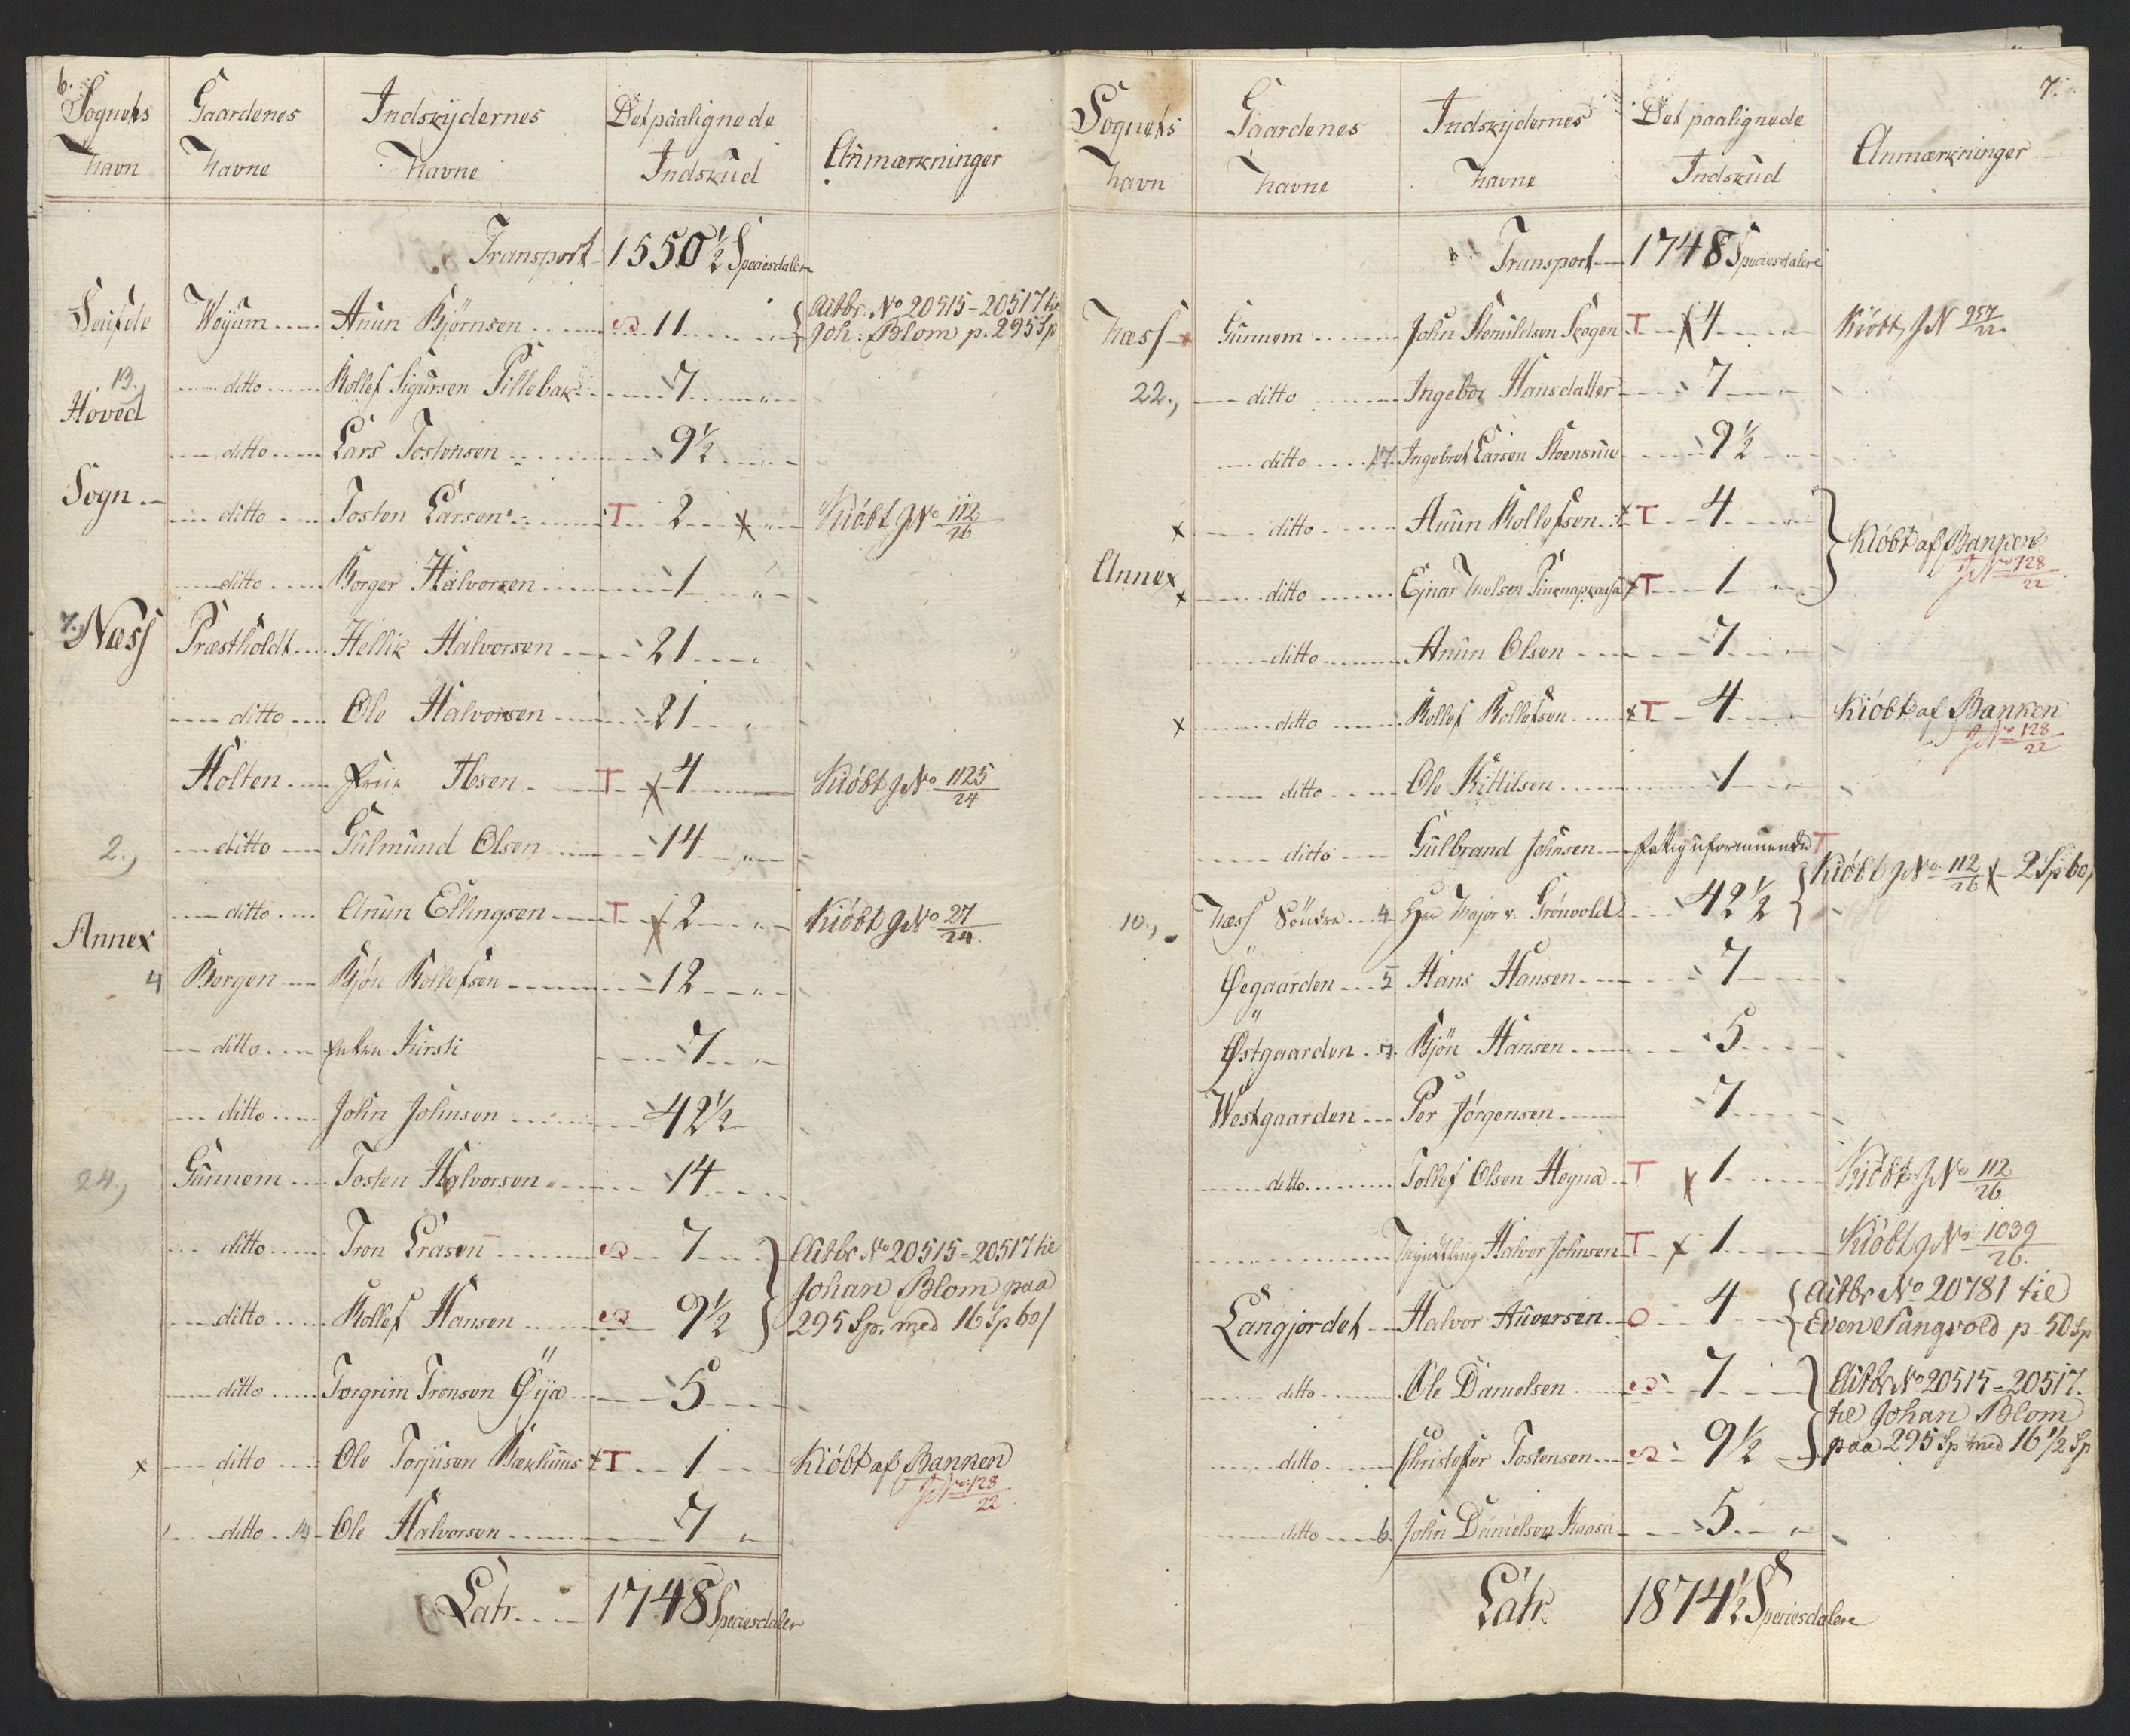 6.
Sognets Navn | Gaardenes Navne | Indskydernes Navne | Det paalignede Indskud | Anmærkninger
Transport 1550½ Speciesdaler
Woyum Anun Bjørnsen 11 Autbr. No 20515-20517 til
Joh: Blom p. 295 Sp
13. ditto Rollef Sigursen Pillebak 7
Hoved ditto Lars Tostensen 9½
Sogn ditto Tosten Larsen T 2 x Kiöbt JNo 112/26
ditto Borger Halvorsen 1
7. Næss Præstholdt Hellik Halvorsen 21
ditto Ole Halvorsen 21
Holten Ibsen T x 4 Kiöbt JNo 1125/24
2., ditto Gulmund Olsen 14
ditto Anun Ellingsen T x 2 Kiöbt JNo 27/24
Annex
4 Borgen Bjön Rollefsen 12
ditto Enken Kirsti 7
ditto John Johnsen 42½
24., Gunnem Tosten Halvorsen 14
ditto Tron Larsen 7 Autbr No 20515-20517 til
Johan Blom paa
ditto Rollef Hansen 9½ 295 Sp. med 16 Sp 60/
ditto Torgrim Tronsen Øija 5
x ditto Ole Torjusen Bækhuus x T 1 Kiöbt af Banken
JNo 128/22
ditto 14 Ole Halvorsen 7
Latr. 1748 Speciesdaler
7.
Sognets Navn | Gaardenes Navne | Indskydernes Navne | Det paalignede Indskud | Anmærkninger
Transport 1748 Speciesdalere
Næss Gunnem John Skogen T x 4 Kiöbt JN 957/22
22., ditto Ingebor Hansdatter 7
ditto 17. Ingebret Larsen 9½
x ditto Anun Rollefsen x T 4
Kiöbt af Banken
JNo 128/22
Annex
x ditto Ejnar x T 1
ditto Anun Olsen 7
x ditto Rollef Rollefsen x T 4 Kiöbt af Banken
JNo 128/22
ditto Ole Kittilsen 1
ditto Gulbrand Johnsen fattig uformuende T
Kiöbt JNo 112/26 x 2 Sp 60/
10., Næss Söndre 4 Hr Major v. Grönvold 42½
Øegaarden 5 Hans Hansen 7
Østgaarden 7. Bjön Hansen 5
Westgaarden Per Jörgensen 7
ditto Tollef Olsen Hegna T x 1 Kiöbt JNo 112/26
Halvor Johnsen T x 1 Kiöbt JNo 1039/26.
Langjordet Halvor Auversen O 4 Autbr No 20781 til
Even Langvold p. 50 Sp
ditto Ole Danielsen 7 Autbr No 20515-20517.
til Johan Blom
ditto Christofer Tostensen 9½ paa 295 Sp med 16½ Sp
ditto 6. John Danielsen Kaasa 5
Latr. 1874½ Speciesdalere